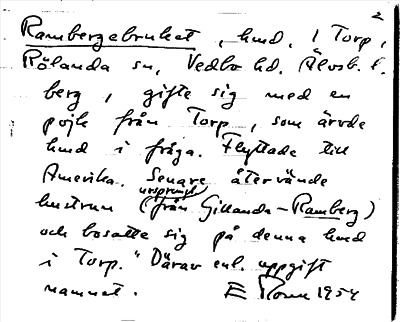 2
Rambergebruket, hmd. i Torp,
Rölanda sn, Vedbo hd. Älvsb. l.
berg, gifte sig med en
pojk från Torp, som ärvde
hmd i fråga. Flyttade till
Amerika. Senare återvände
hustrun (ursprungl från Gillanda-Ramberg)
och bosatte sig på denna hmd
i Torp." Därav enl. uppgift
namnet. E 1954